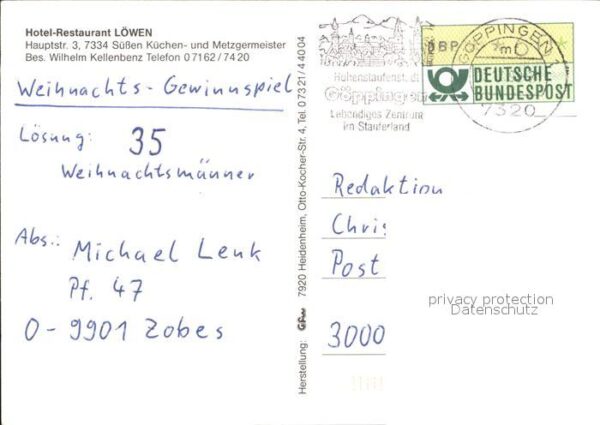 Hotel-Restaurant LÖWEN
Hauptstr. 3, 7334 Süßen Küchen- und Metzgermeister
Bes. Wilhelm Kellenbenz Telefon 07162/7420
Weihnachts-Gewinnspiel
Lösung: 35
Weihnachtsmänner
Abs.: Michael Lenk
Pf. 47
O-9901 Zobes
Herstellung: 7920 Heidenheim, Otto-Kocher-Str. 4, Tel. 07321/44004
Hohenstaufenstadt
Göppingen
Lebendiges Zentrum
im Stauferland
GÖPPINGEN
7320
DBP
DEUTSCHE
BUNDESPOST
Redaktion
Chris
Post
3000
privacy protection
Datenschutz